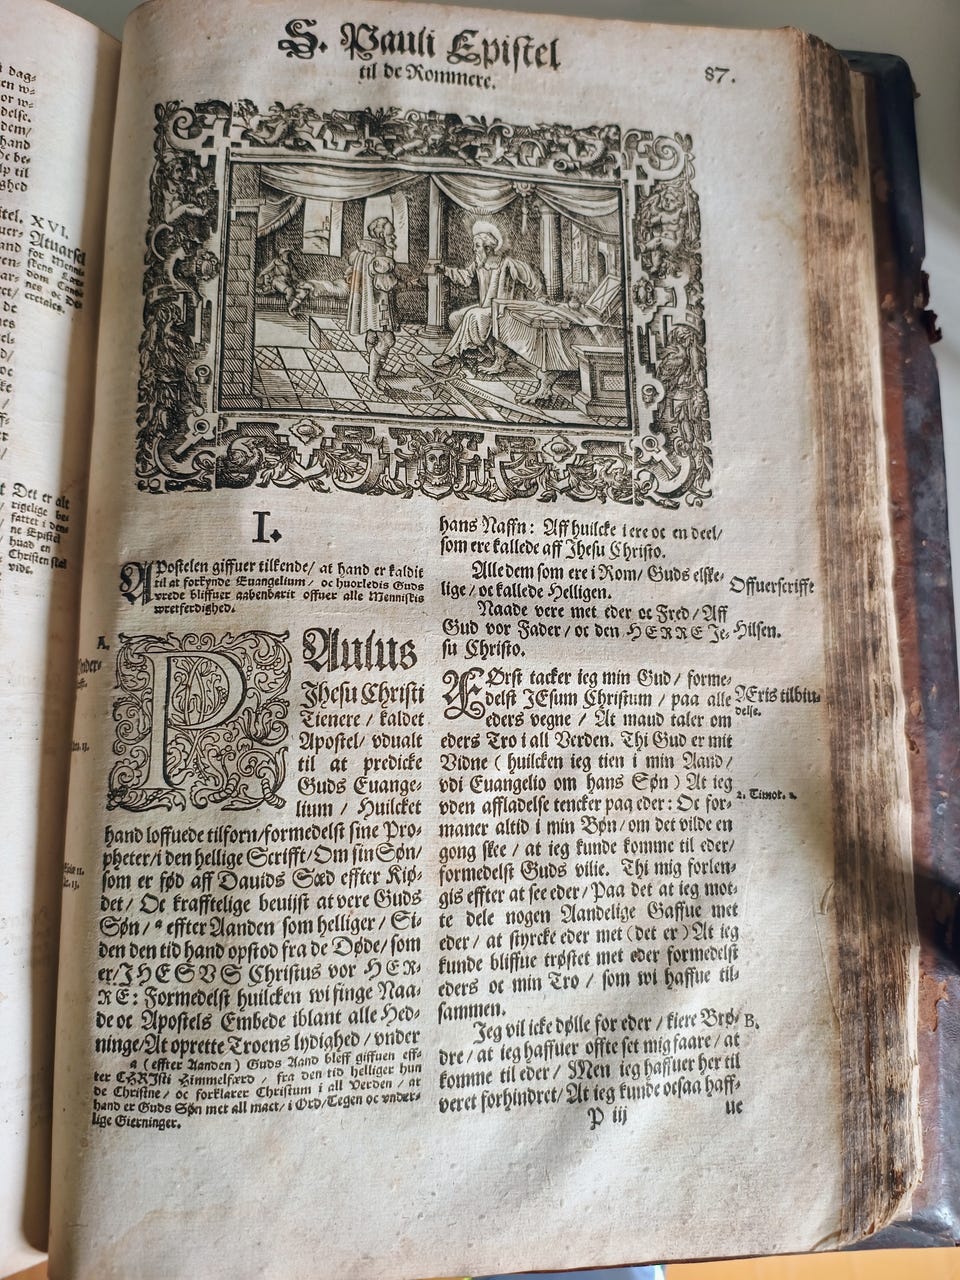 S. Pauli Epistel
til de Rommere.
87.
I.
APostelen giffuer tilkende/ at hand er kaldit
til at forkynde Euangelium/ oc huorledis Guds
vrede bliffuer aabenbarit offuer alle Menniskis
wretferdighed.
A.
PAulus
Jhesu Christi
Tienere / kaldet
Apostel/ vdualt
til at predicke
Guds Euange-
lium / Huilcket
hand loffuede tilforn/formedelst sine Pro-
pheter/i den hellige Scrifft/Om sin Søn/
som er fød aff Dauids Sæd effter Kiø-
det/ Oc krafftelige beuijst at vere Guds
Søn/ a effter Aanden som helliger/ Si-
den den tid hand opstod fra de Døde/som
er/JHESVS Christus vor HER-
RE: Formedelst huilcken wi finge Naa-
de oc Apostels Embede iblant alle Hed-
ninge/At oprette Troens lydighed/vnder
a (effter Aanden) Guds Aand bleff giffuen eff-
ter CHRJsti Himmelfærd / fra den tid helliger hun
de Christne/ oc forklarer Christum i all Verden/ at
hand er Guds Søn met all mact/i Ord/Tegen oc vnder-
lige Gierninger.
hans Naffn: Aff huilcke i ere oc en deel/
som ere kallede aff Jhesu Christo.
Alle dem som ere i Rom/ Guds elske-
lige/oc kallede Helligen.
Naade vere met eder oc Fred/Aff
Gud vor Fader/oc den HERRE Je-
su Christo.
Offuerscrifft
Hilsen.
FØrst tacker ieg min Gud/ forme-
delst JEsum Christum / paa alle
eders vegne / At maud taler om
eders Tro i all Verden. Thi Gud er mit
Vidne ( huilcken ieg tien i min Aand/
vdi Euangelio om hans Søn ) At ieg
vden affladelse tencker paa eder: Oc for-
maner altid i min Bøn/om det vilde en
gong skee / at ieg kunde komme til eder/
formedelst Guds vilie. Thi mig forlen-
gis effter at see eder/Paa det at ieg mot-
te dele nogen Aandelige Gaffue met
eder/ at styrcke eder met (det er) At ieg
kunde bliffue trøstet met eder formedelst
eders oc min Tro / som wi haffue til-
sammen.
Jeg vil icke dølle for eder/kiere Brø-
dre/at ieg haffuer offte set mig faare/at
komme til eder/ Men ieg haffuer her til
veret forhindret/At ieg kunde ocsaa haff-
P iij
ue
Æris tilbiu-
delse.
2. Timot. 1.
B.
XVI.
Det er alt